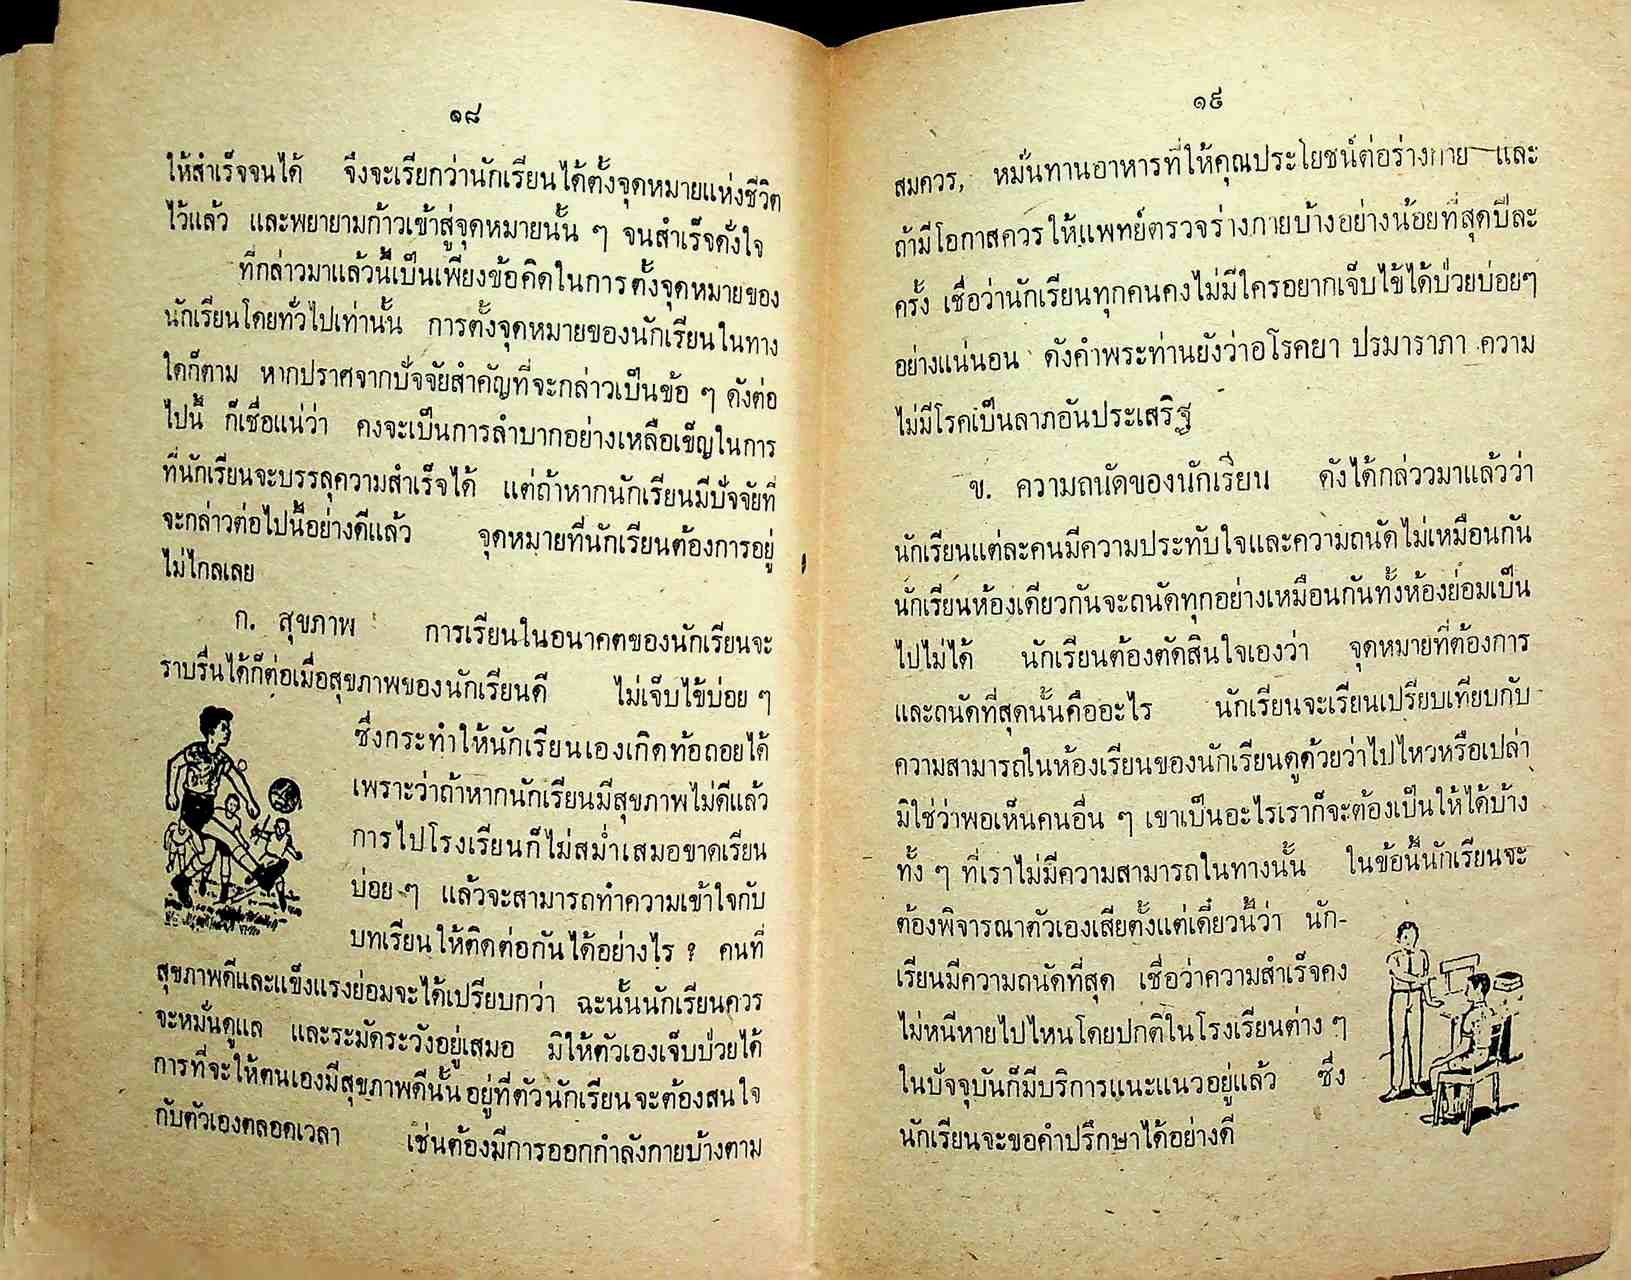 ๑๘
ให้สำเร็จจนได้ จึงจะเรียกว่านักเรียนได้ตั้งจุดหมายแห่งชีวิต
ไว้แล้ว และพยายามก้าวเข้าสู่จุดหมายนั้น ๆ จนสำเร็จดั่งใจ
ที่กล่าวมาแล้วนี้เป็นเพียงข้อคิดในการตั้งจุดหมายของ
นักเรียนโดยทั่วไปเท่านั้น การตั้งจุดหมายของนักเรียนในทาง
ใดก็ตาม หากปราศจากปัจจัยสำคัญที่จะกล่าวเป็นข้อ ๆ ดังต่อ
ไปนี้ ก็เชื่อแน่ว่า คงจะเป็นการลำบากอย่างเหลือเข็ญในการ
ที่นักเรียนจะบรรลุความสำเร็จได้ แต่ถ้าหากนักเรียนมีปัจจัยที่
จะกล่าวต่อไปนี้อย่างดีแล้ว จุดหมายที่นักเรียนต้องการอยู่
ไม่ไกลเลย
ก. สุขภาพ การเรียนในอนาคตของนักเรียนจะ
ราบรื่นได้ก็ต่อเมื่อสุขภาพของนักเรียนดี ไม่เจ็บไข้บ่อย ๆ
ซึ่งกระทำให้นักเรียนเองเกิดท้อถอยได้
เพราะว่าถ้าหากนักเรียนมีสุขภาพไม่ดีแล้ว
การไปโรงเรียนก็ไม่สม่ำเสมอขาดเรียน
บ่อย ๆ แล้วจะสามารถทำความเข้าใจกับ
บทเรียนให้ติดต่อกันได้อย่างไร ? คนที่
สุขภาพดีและแข็งแรงย่อมจะได้เปรียบกว่า ฉะนั้นนักเรียนควร
จะหมั่นดูแล และระมัดระวังอยู่เสมอ มิให้ตัวเองเจ็บป่วยได้
การที่จะให้ตนเองมีสุขภาพดีนั้นอยู่ที่ตัวนักเรียนจะต้องสนใจ
กับตัวเองตลอดเวลา เช่นต้องมีการออกกำลังกายบ้างตาม
๑๙
สมควร, หมั่นทานอาหารที่ให้คุณประโยชน์ต่อร่างกาย และ
ถ้ามีโอกาสควรให้แพทย์ตรวจร่างกายบ้างอย่างน้อยที่สุดปีละ
ครั้ง เชื่อว่านักเรียนทุกคนคงไม่มีใครอยากเจ็บไข้ได้ป่วยบ่อยๆ
อย่างแน่นอน ดังคำพระท่านยังว่าอโรคยา ปรมาราภา ความ
ไม่มีโรคเป็นลาภอันประเสริฐ
ข. ความถนัดของนักเรียน ดังได้กล่ววมาแล้วว่า
นักเรียนแต่ละคนมีความประทับใจและความถนัดไม่เหมือนกัน
นักเรียนห้องเดียวกันจะถนัดทุกอย่างเหมือนกันทั้งห้องย่อมเป็น
ไปไม่ได้ นักเรียนต้องตัดสินใจเองว่า จุดหมายที่ต้องการ
และถนัดที่สุดนั้นคืออะไร นักเรียนจะเรียนเปรียบเทียบกับ
ความสามารถในห้องเรียนของนักเรียนดูด้วยว่าไปไหวหรือเปล่า
มิใช่ว่าพอเห็นคนอื่น ๆ เขาเป็นอะไรเราก็จะต้องเป็นให้ได้บ้าง
ทั้ง ๆ ที่เราไม่มีความสามารถในทางนั้น ในข้อนี้นักเรียนจะ
ต้องพิจารณาตัวเองเสียตั้งแต่เดี๋ยวนี้ว่า นัก-
เรียนมีความถนัดที่สุด เชื่อว่าความสำเร็จคง
ไม่หนีหายไปไหนโดยปกติในโรงเรียนต่าง ๆ
ในปัจจุบันก็มีบริการแนะแนวอยู่แล้ว ซึ่ง
นักเรียนจะขอคำปรึกษาได้อย่างดี